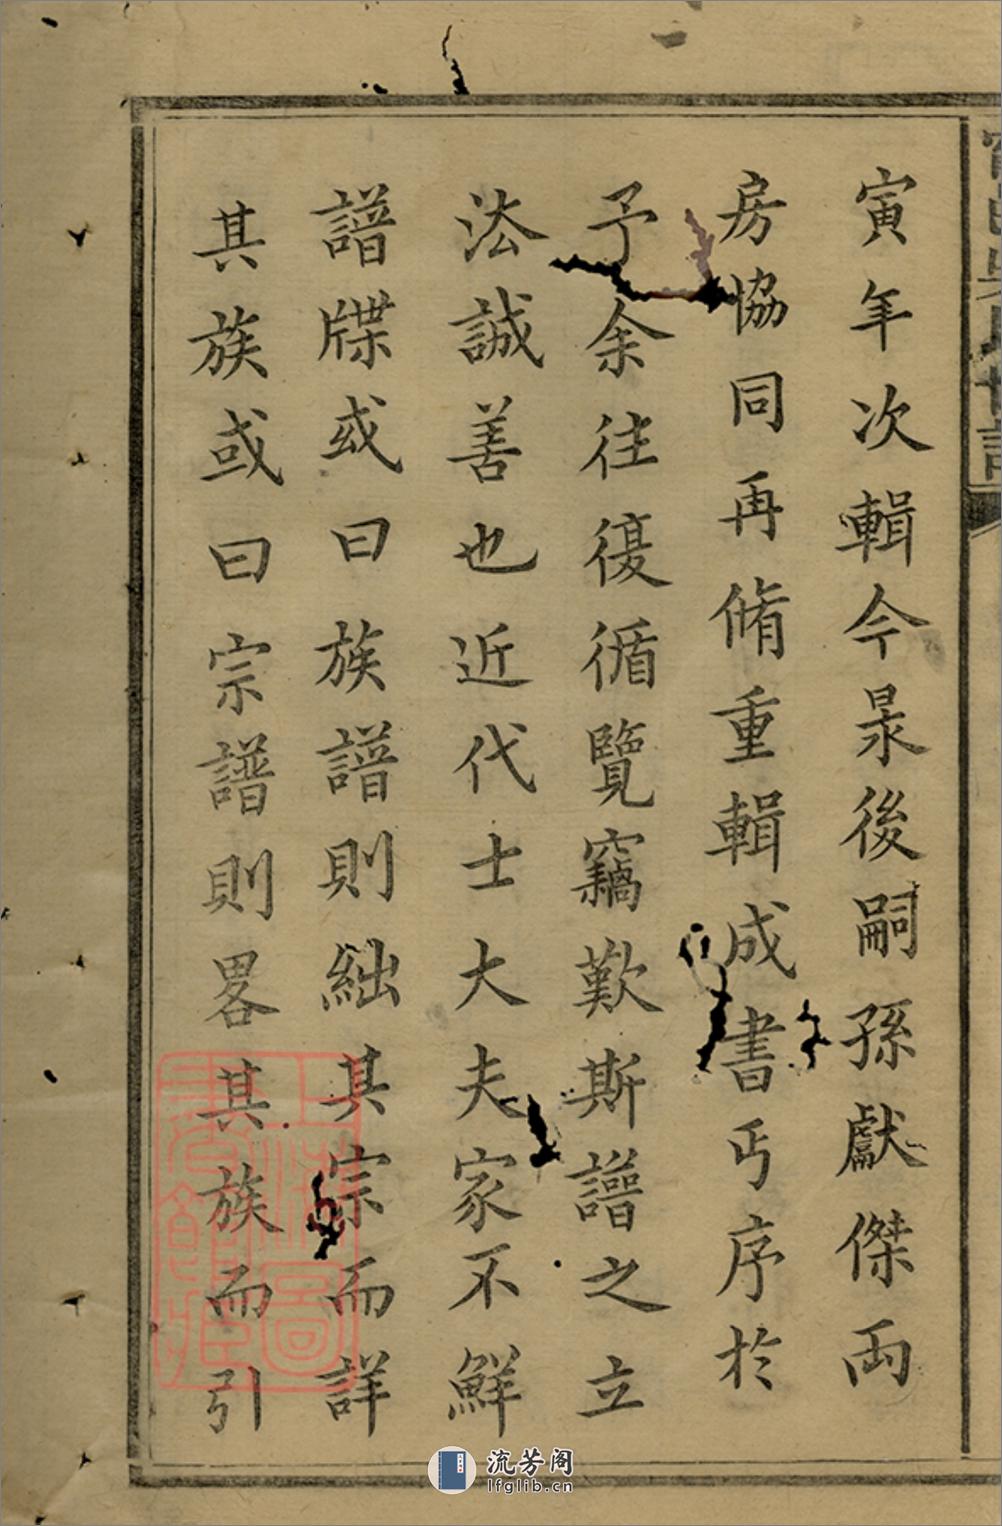 寅年次輯今㝡後嗣孫獻傑両
房協同再脩重輯成書丐序於
予余往復循覽竊歎斯譜之立
法誠善也近代士大夫家不鮮
譜牒或曰族譜則絀其宗而詳
其族或曰宗譜則畧其族而引
上海圖書館藏
流芳阁
lfglib.cn